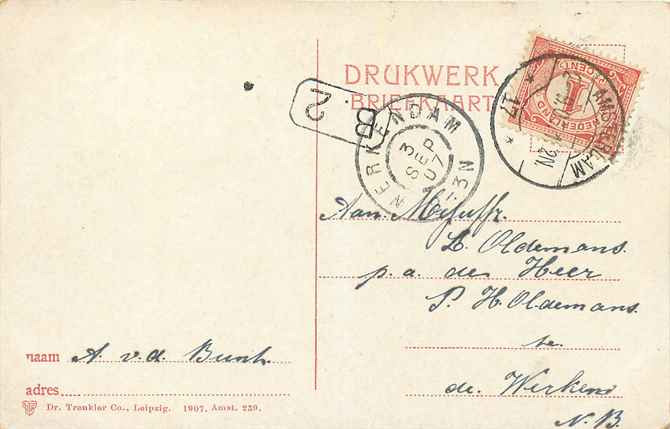 DRUKWERK
BRIEFKAART
NEDERLAND
1
CENT
AMSTERDAM
2N
17
B 2
WERKENDAM
3
SEP
07
-3N
Aan Mejuffr.
L. Oldemans.
p.a. den Heer
P. H. Oldemans.
te.
de Werken
N.B.
naam A. v.d.
adres
Dr. Trenkler Co., Leipzig. 1907, Amst. 259.